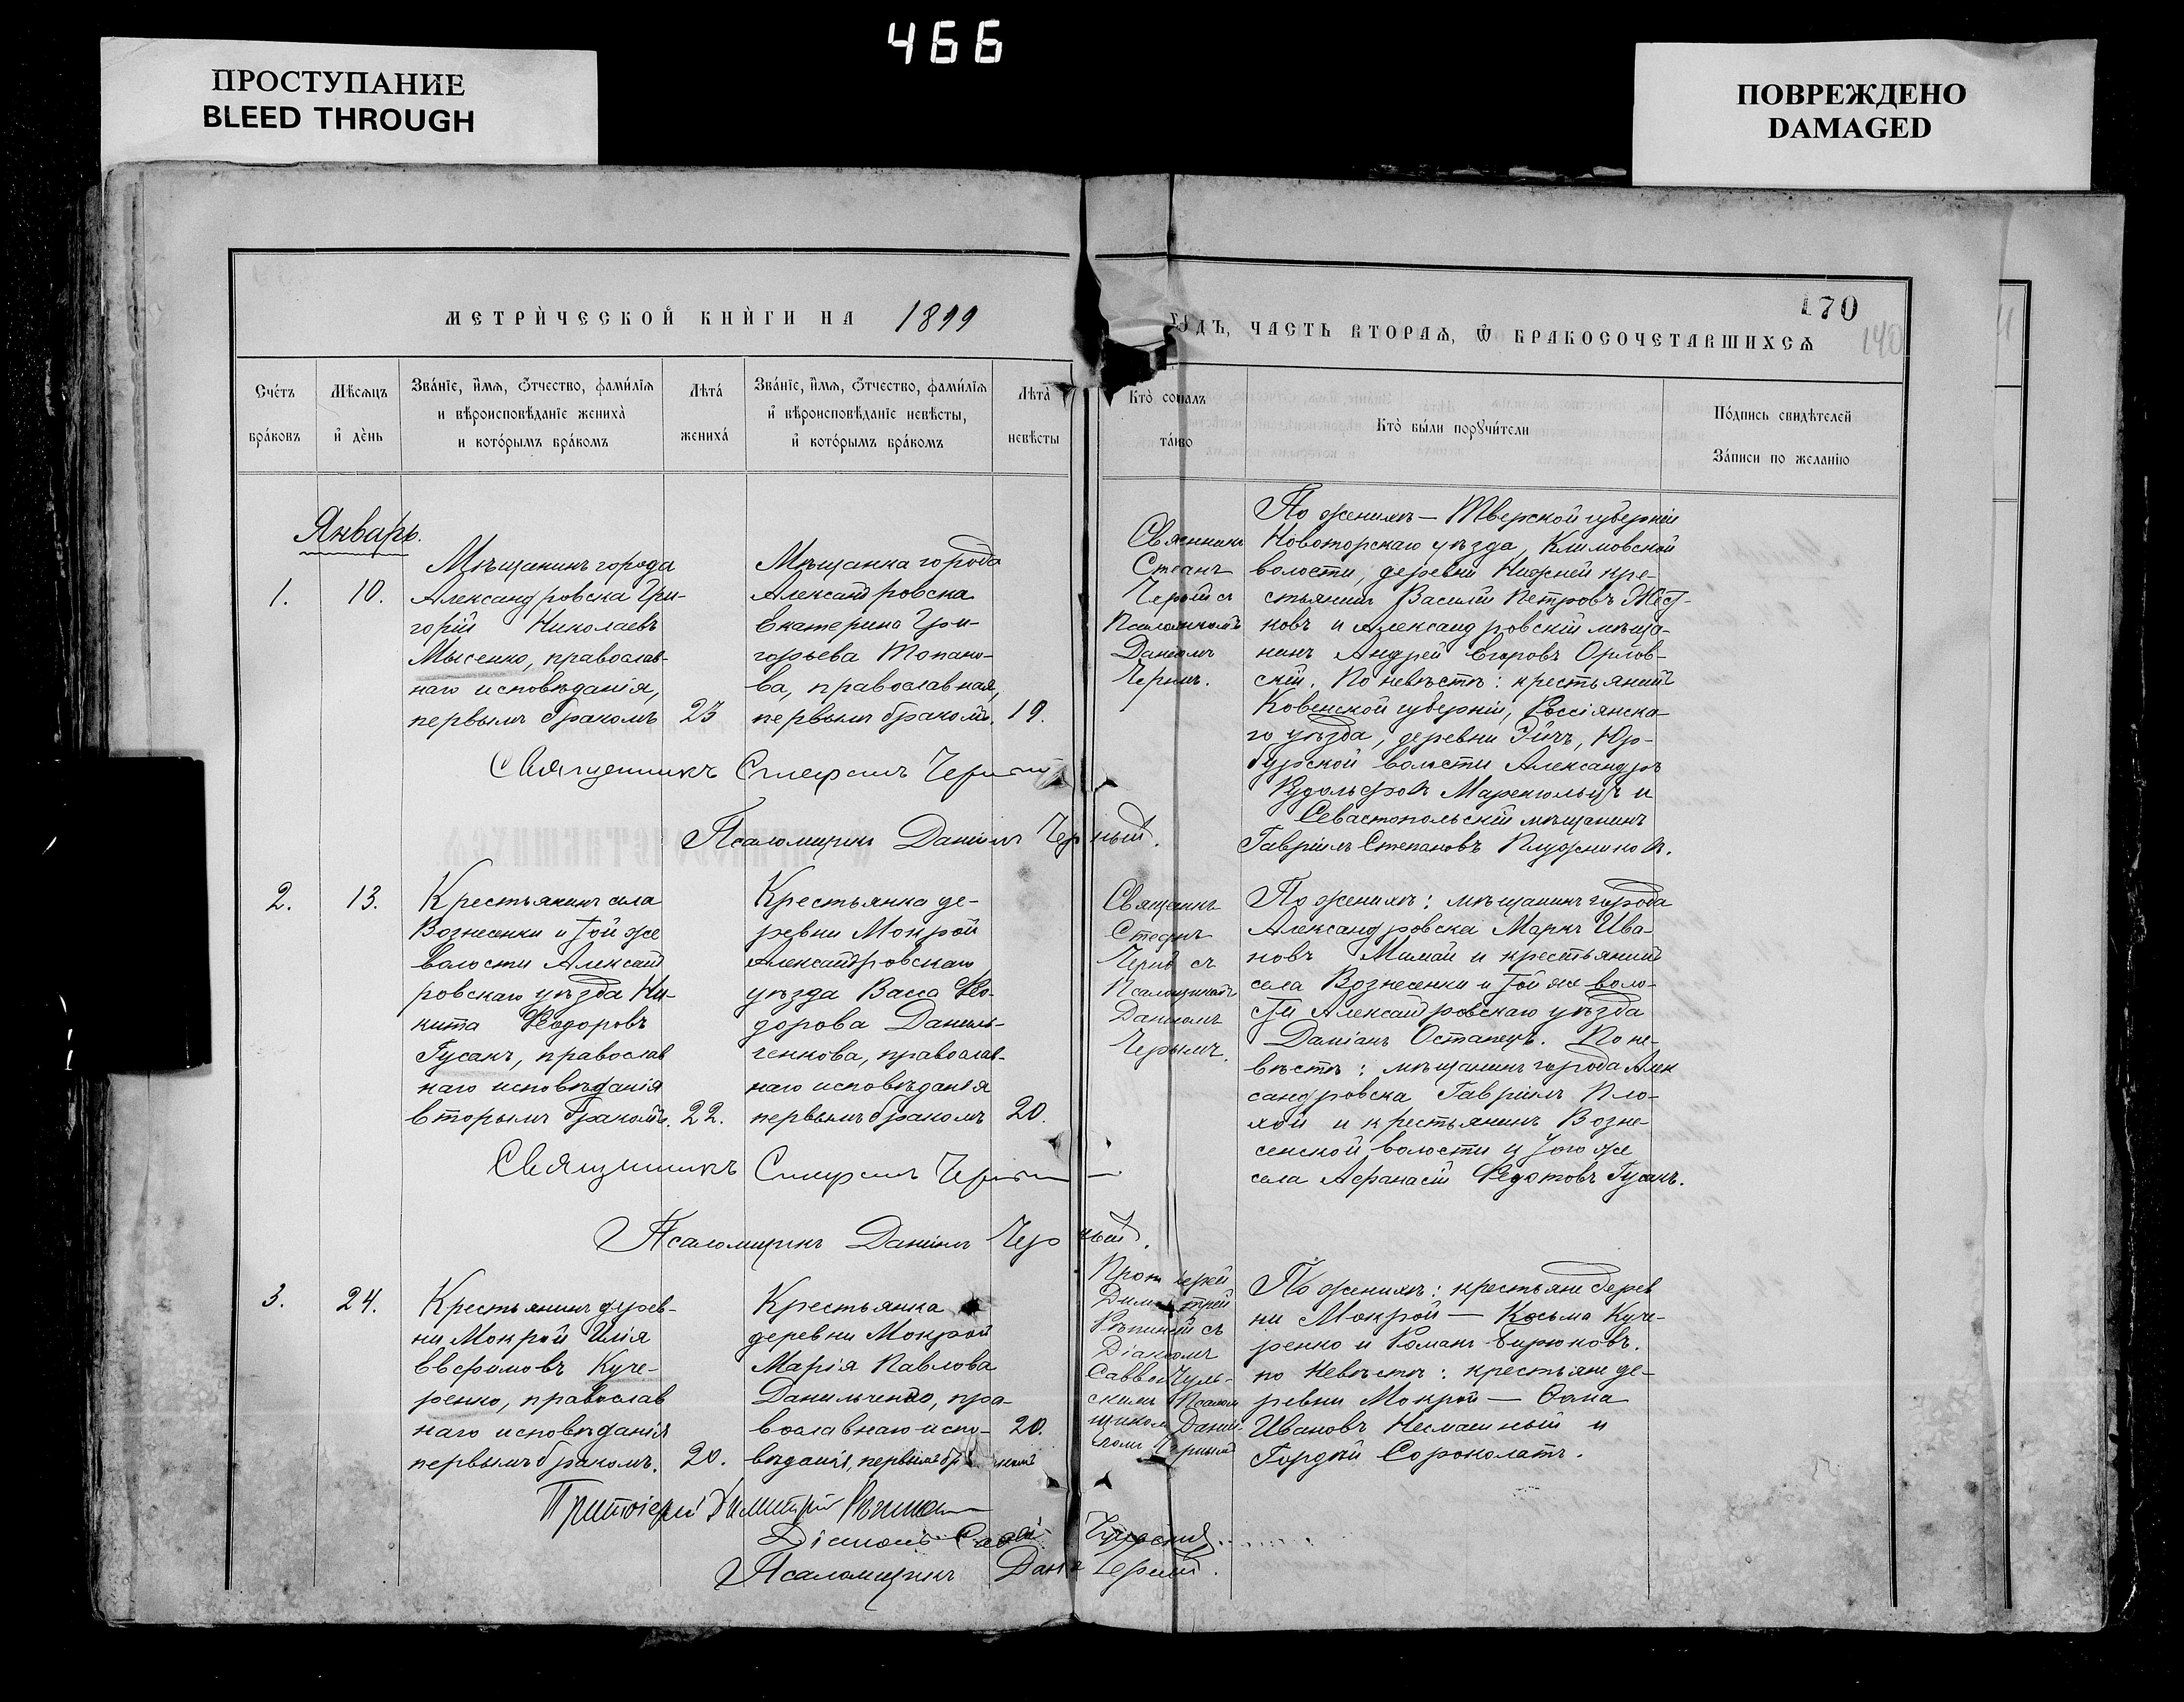 466
ПРОСТУПАНИЕ
BLEED THROUGH
ПОВРЕЖДЕНО
DAMAGED
МЕТРИЧЕСКОЙ КНИГИ НА 1899
170
140
ГОДЪ, ЧАСТЬ ВТОРАЯ, Ѿ БРАКОСОЧЕТАВШИХСЯ
Счетъ
браковъ
Мѣсяцъ
и день
Званіе, имя, отчество, фамилія
и вѣроисповѣданіе жениха
и которымъ бракомъ
Лѣта
жениха
Званіе, имя, отчество, фамилія
и вѣроисповѣданіе невѣсты,
и которымъ бракомъ
Лѣта
невѣсты
Кто
Кто были поручители
Подпись свидѣтелей
Записи по желанію
Январь.
1.
10.
Мѣщанинъ города
Александровска Гри-
горій Николаевъ
Мысенко, православ-
наго исповѣданія,
первымъ бракомъ
23
Мѣщанка города
Александровска
Екатерина Гри-
горьева Топано-
ва, православная,
первымъ бракомъ.
19.
Псаломщикомъ
Даніиломъ
По женихѣ — Тверской губерніи
Новоторскаго уѣзда, Климовской
волости, деревни Нижней кре-
стьянинъ Василій Петровъ
ковъ и Александровскій мѣща-
нинъ Андрей Егоровъ Орлов-
скій. По невѣстѣ: крестьянинъ
Ковенской губерніи, Россіянска-
го уѣзда, деревни Юр-
бургской волости Александръ
Рудольфовъ и
Севастопольскій мѣщанинъ
Гавріилъ Степановъ Плужниковъ.
Священникъ Стефанъ Черный
Псаломщикъ Даніилъ Черный.
2.
13.
Крестьянинъ села
Вознесенки и той же
волости Александ
ровскаго уѣзда Ни-
кита Ѳеодоровъ
Гусакъ, православ
наго исповѣданія
вторымъ бракомъ.
22.
Крестьянка де-
ревни Мокрой
Александровскаго
уѣзда Васса Ѳео-
дорова Даниль-
ченкова, православ-
наго исповѣданія
первымъ бракомъ
20.
съ
Псаломщикомъ
Даніиломъ
По женихѣ: мѣщанинъ города
Александровска Маркъ Ива-
новъ Мамай и крестьянинъ
села Вознесенки и той же воло-
сти Александровскаго уѣзда
Даміанъ Остапецъ. По не-
вѣстѣ: мѣщанинъ города Алек
сандровска Гавріилъ Пло-
хой и крестьянинъ Возне-
сенской волости и того же
села Аѳанасій Ѳедотовъ Гусакъ.
Священникъ Стефанъ Черный
Псаломщикъ Даніилъ Черный.
3.
24.
Крестьянинъ дерев-
ни Мокрой Илія
Евѳимовъ Куче-
ренко, православ
наго исповѣданія
первымъ бракомъ.
20.
Крестьянка
деревни Мокрой
Марія Павлова
Данильченко, пра-
вославнаго испо-
вѣданія, первымъ бракомъ
20.
Протоіерей
Димитрій
съ
Діакономъ
Саввой
По женихѣ: крестьяне дерев
ни Мокрой — Косьма Куче-
ренко и Романъ Бирюковъ.
по невѣстѣ: крестьяне де-
ревни Мокрой — Ѳома
Ивановъ Несмашный и
Гордѣй Сороколатъ.
Протоіерей Димитрій
Діаконъ Савва
Псаломщикъ Даніилъ Черный.